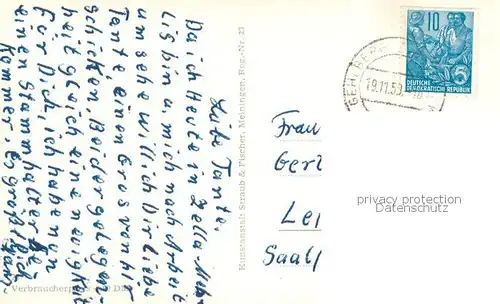 Liebe Tante,
Da ich Heute in Zella-Meh-
lis bin u. mich nach Arbeit
umsehe will ich Dir liebe
Tante einen Gros von hier
schicken. Bei der gelegen-
heit gleich eine neuigkeit
für Dich, ich habe nun
einen Stammhalter be-
kommen. Es grüßt Dich
Kunstanstalt Straub & Fischer, Meiningen, Reg.-Nr. 23
Verbraucherpreis DM
10
DEUTSCHE
DEMOKRATISCHE REPUBLIK
19.11.53
Frau
Gert
Lei
Saalf
privacy protection
Datenschutz